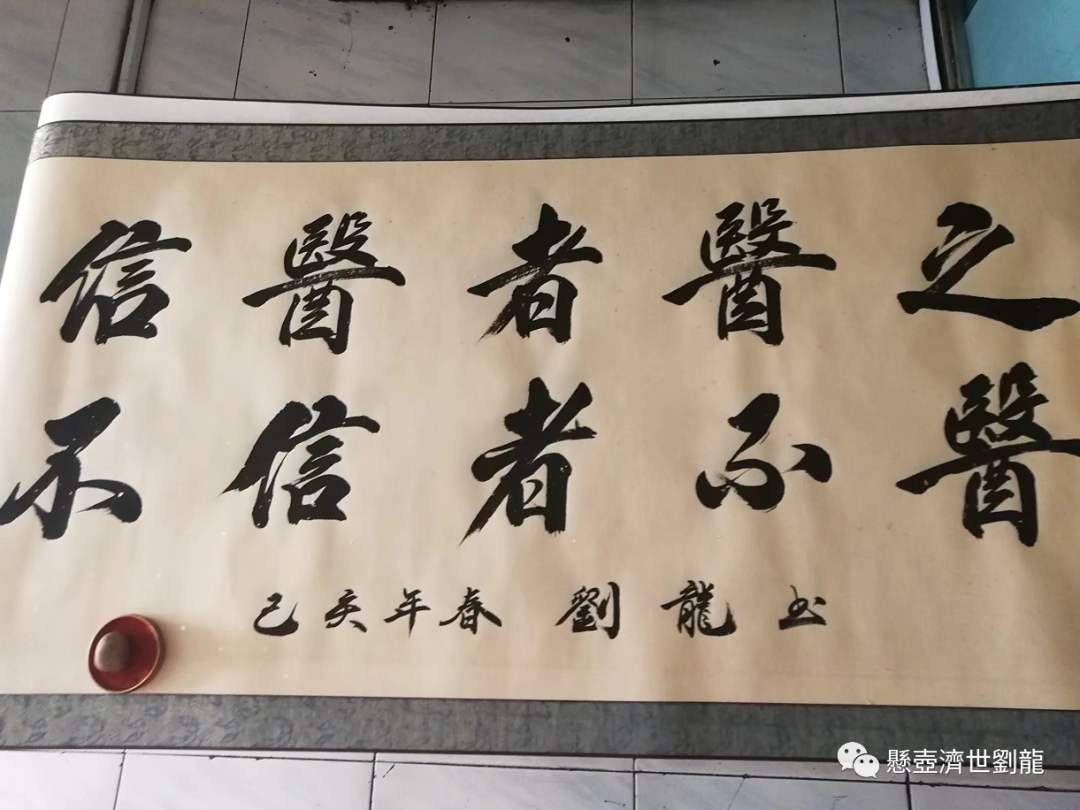 信醫者醫之
不信者不醫
己亥年春 劉龍 书
懸壺濟世劉龍